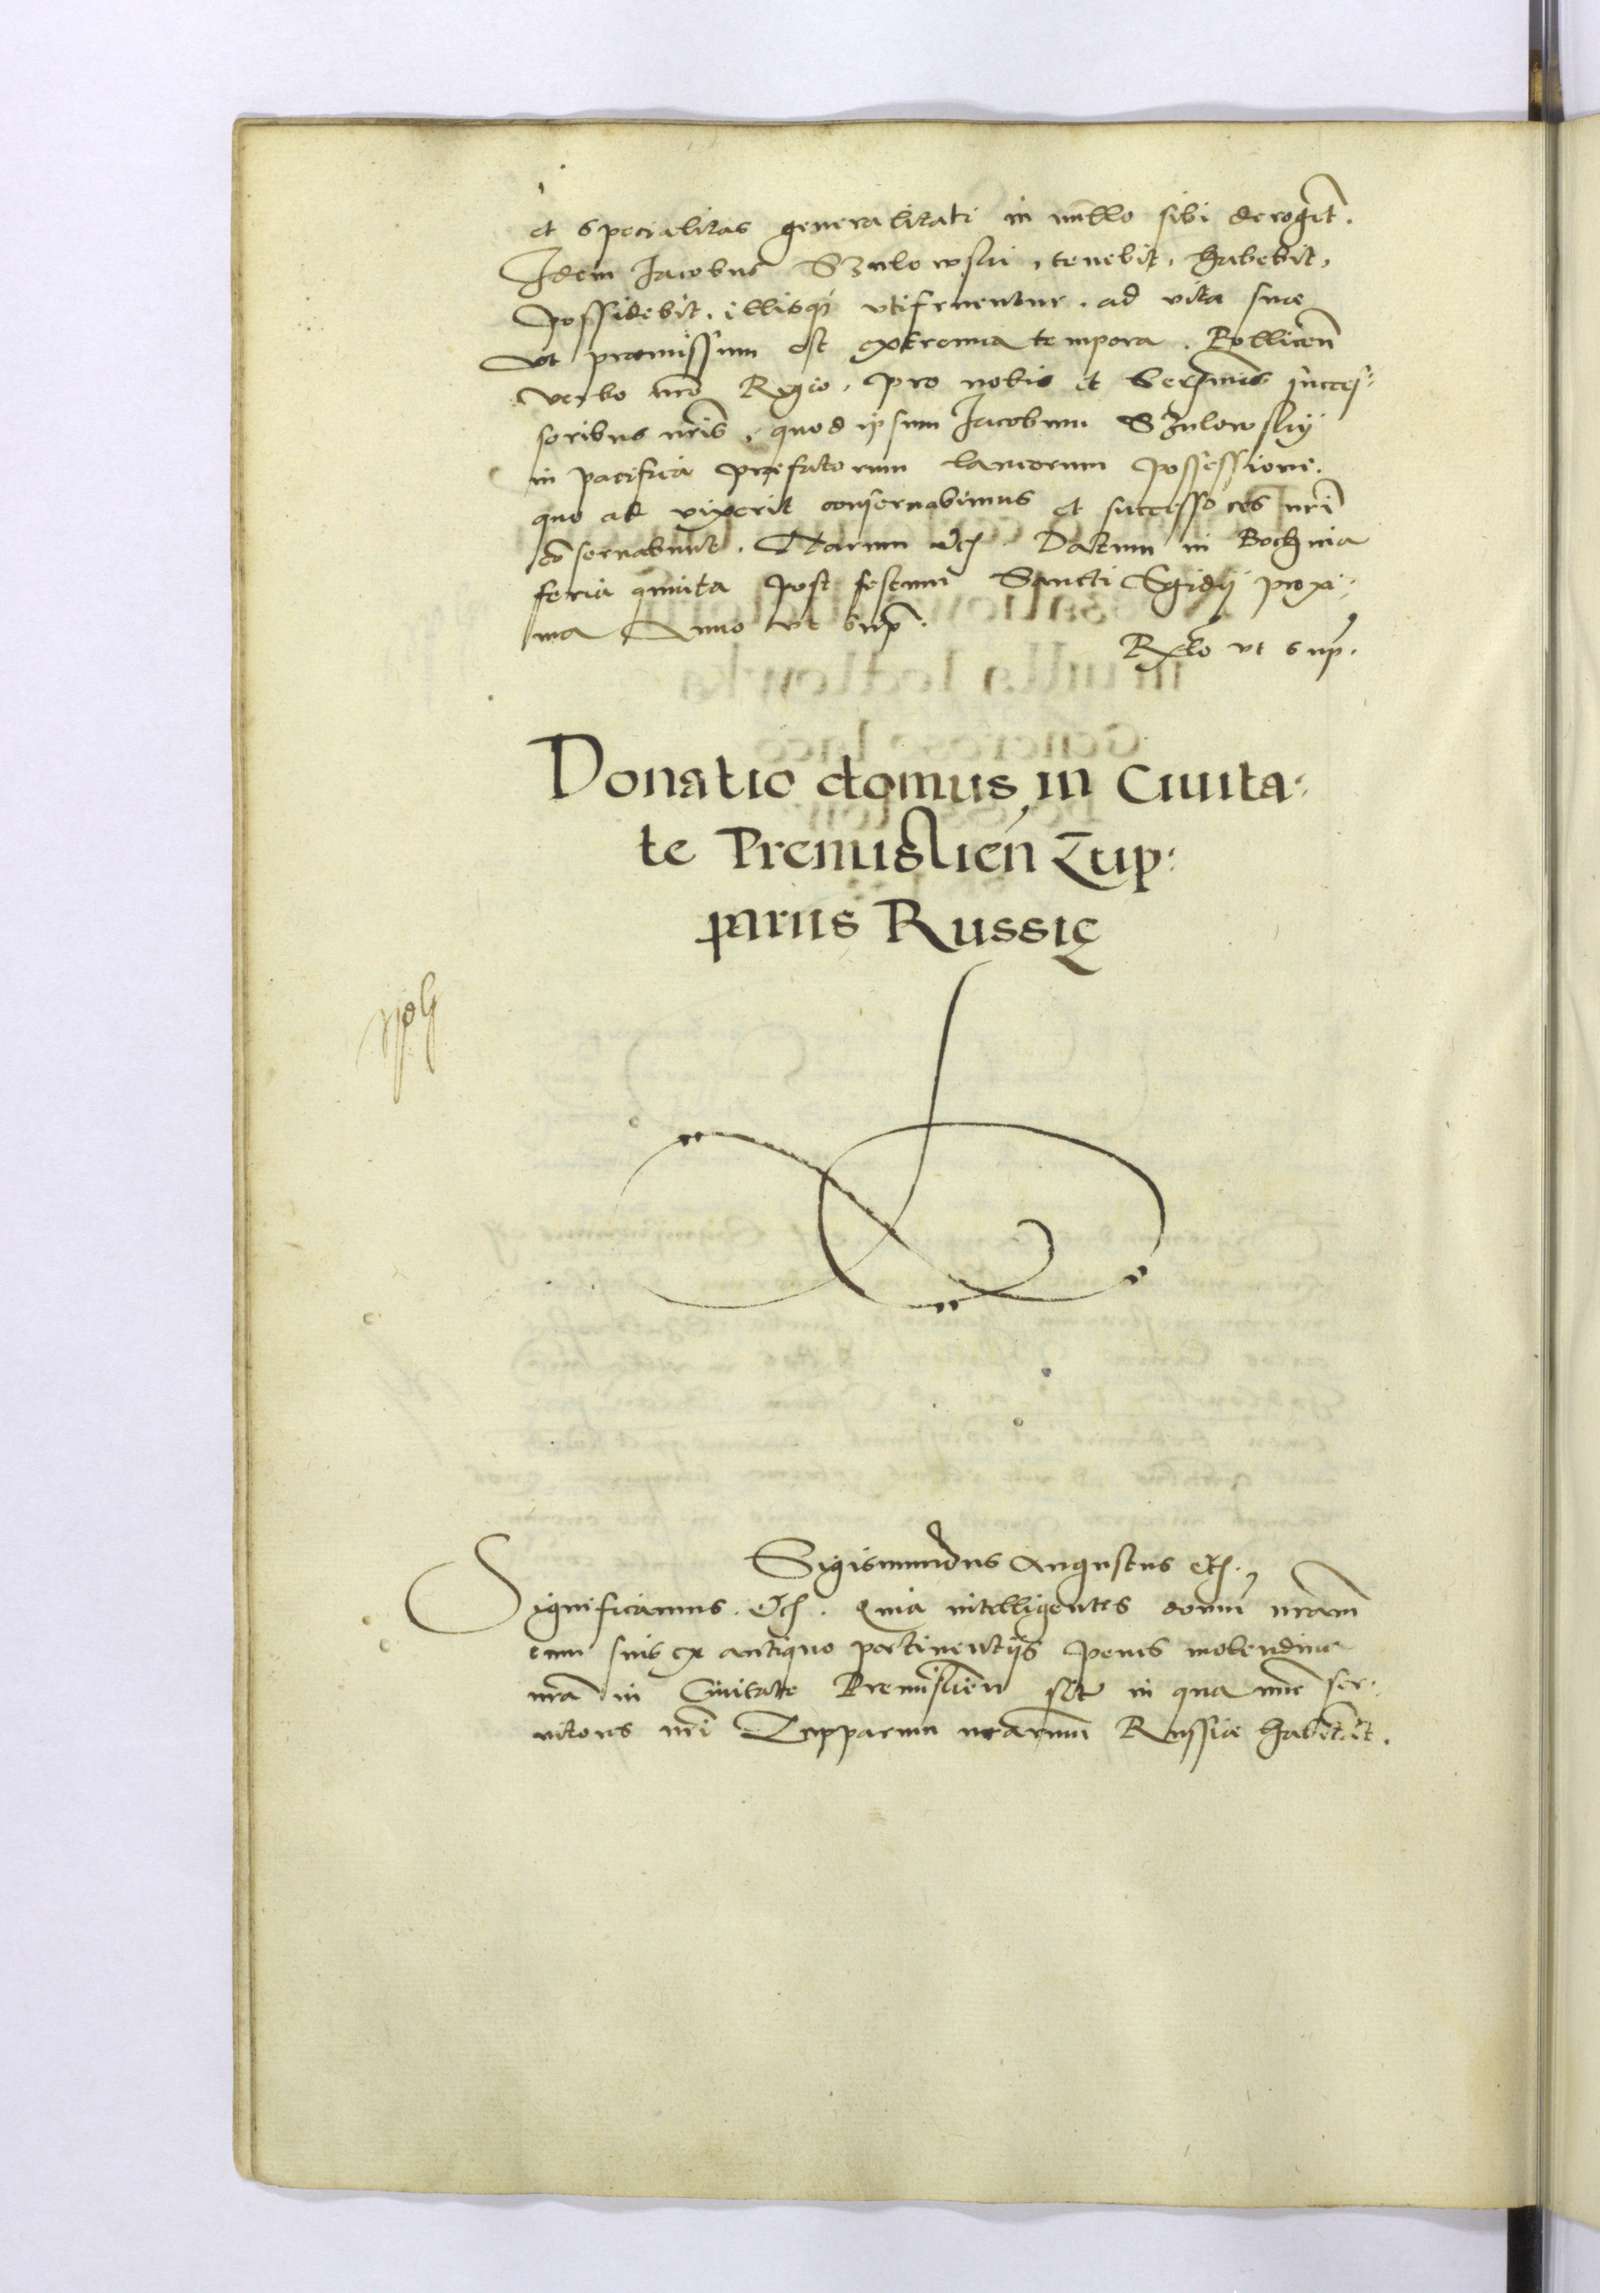 et specialitas generalitati in nullo sibi derogēt.
Idem Jacobus Szulowski, tenebit, habebit,
possidebit, illisq; utifruentur, ad vita suae
vt praemissum est extrema tempora. Pollicen̄
verbo nr̄o Regio, pro nobis et Seren̄mis succes:
soribus nr̄is, quod ipsum Jacobum Szulowsky
in pacifica praefatorum laneorum possessione,
quo ad vixerit conseruabimus et successores nr̄i
cōseruabunt. Harum etc. Datum in Bochnia
feria quinta post festum Sancti Egidij proxi:
ma Anno vt sup̄.
Rel̄o vt sup̄.
Donatio domus in Ciuita:
te Premislien̄ Zup:
pariis Russię
Sigismundus Augustus etc.
Significamus. Etc. Quia intelligentes domū nr̄am
cum suis ex antiquo pertinentijs penes molendina
nr̄a in Ciuitate Premislien̄ sit̄ in qua nunc ser:
uitores nr̄i Zupparum nr̄arum Russiae habitāt.